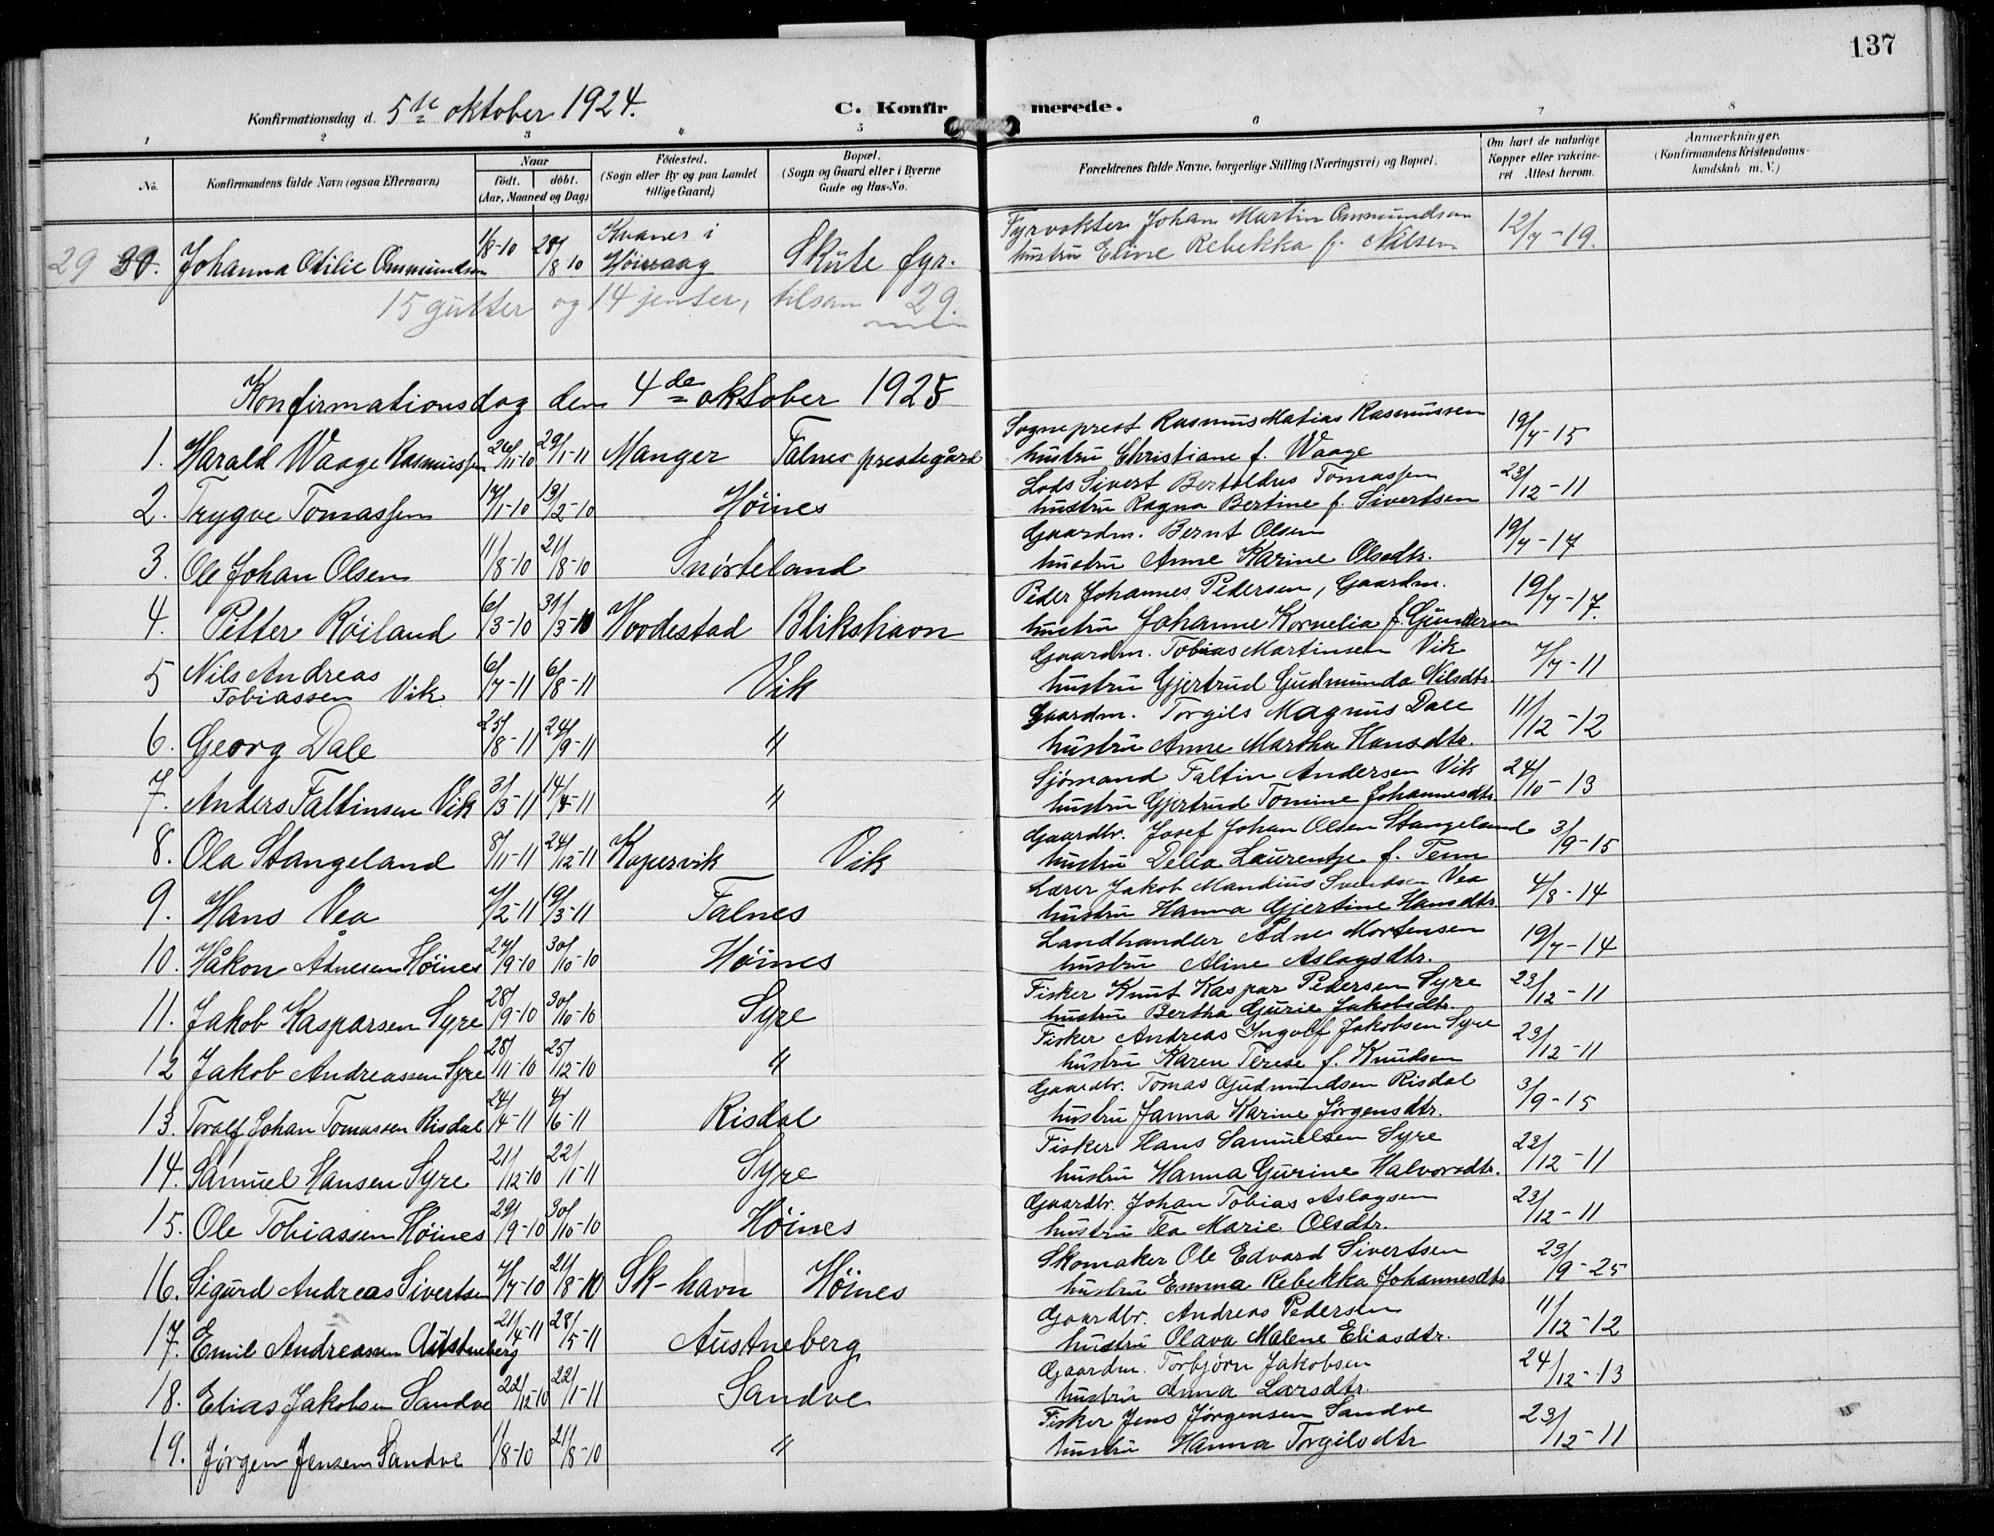 137
Konfirmationsdag d. 5te oktober 1924.
C. Konfirmerede.
1 2 3 4 5 6 7 8
No. Konfirmandens fulde Navn (ogsaa Efternavn) Naar født. døbt. (Aar, Maaned og Dag) Fødested. (Sogn eller By og paa Landet tillige Gaard) Bopæl. (Sogn og Gaard eller i Byerne Gade og Hus-No.) Forældrenes fulde Navne, borgerlige Stilling (Næringsvei) og Bopæl. Om havt de naturlige Kopper eller vakcineret Attest herom. Anmærkninger. (Konfirmandens Kristendomskundskab m. V.)
29 30. Johanna Otilie Ommundsen 1/8-10 28/8 10 Kvanes i Høivaag Skute fyr. Fyrvokter Johan Martin Ommundsen 12/7-19.
hustru Eline Rebekka f. Nilsen
15 gutter og 14 jenter, tilsam 29.
Konfirmationsdag den 4de oktober 1925
1. Harald Waage Rasmussen 26/11-10 29/1-11 Manger Falnes prestegård Sogneprest Rasmus Matias Rasmussen 19/7-15
hustru Christiane f. Waage
2. Trygve Tomassen 17/1-10 13/2-10 Høines Lods Sivert Bertoldus Tomassen 23/12-11
hustru Ragna Bertine f. Sivertsen
3. Ole Johan Olsen 11/8-10 21/8-10 Snørteland Gaardm. Bernt Olsen 19/7-17
hustru Anne Karine Olsdtr.
4. Petter Røiland 6/3-10 31/3-10 Hovdestad Blikshavn Peder Johannes Pedersen, Gaardm. 19/7-17.
hustru Johanne Kornelia f. Gundersen
5 Nils Andreas Tobiassen Vik 6/7-11 6/8-11 Vik Gaardm. Tobias Martinsen Vik 7/7-11
hustru Gjertrud Gudmunda Nilsdtr.
6. Georg Dale 25/8-11 24/9-11 " Gaardm. Torgils Magnus Dale 11/12-12
hustru Anne Martha Hansdtr.
7. Anders Faltinsen Vik 3/3-11 14/4-11 " Sjømand Faltin Andersen Vik 24/10-13
hustru Gjertrud Tomine Johannesdtr
8. Ola Stangeland 8/11-11 24/12-11 Kopervik Vik Gaardbr. Josef Johan Olsen Stangeland 3/9-15
hustru Delia Laurentze f. Tenn
9. Hans Vea 7/2-11 19/3-11 Falnes Lærer Jakob Mandius Svendsen Vea 4/8-14
hustru Hanna Gjertine Hansdtr.
10. Håkon Ådnesen Høines 27/9-10 30/10-10 Høines Landhandler Ådne Mortensen 19/7-14
hustru Aline Aslagsdtr.
11. Jakob Kasparsen Syre 28/9-10 30/10-10 Syre Fisker Knut Kaspar Pedersen Syre 23/12-11
hustru Bertha Gurie Jakobsdtr.
12 Jakob Andreassen Syre 28/11-10 25/12-10 " Fisker Andreas Ingolf Jakobsen Syre 23/12-11
hustru Karen Terese f. Knudsen
13. Toralf Johan Tomassen Risdal 24/4-11 4/6-11 Risdal Gaardbr. Tomas Gudmundsen Risdal 3/9-15
hustru Janna Karine Jørgensdtr.
14. Samuel Hansen Syre 21/12-10 22/1-11 Syre Fisker Hans Samuelsen Syre 23/12-11
hustru Hanna Gurine Halvorsdtr.
15. Ole Tobiassen Høines 29/9-10 30/10-10 Høines Gaardbr. Johan Tobias Aslagsen 23/12-11
hustru Tea Marie Olsdtr.
16. Sigurd Andreas Sivertsen 7/7-10 21/8-10 Sk-havn Høines Skomaker Ole Edvard Sivertsen 23/9-25
hustru Emma Rebekka Johannesdtr
17. Emil Andreassen Austneberg 21/4-11 28/5-11 Austneberg Gaardbr. Andreas Pedersen 11/12-12
hustru Olava Malene Eliasdtr.
18. Elias Jakobsen Sandve 22/12-10 22/1-11 Sandve Gaardm. Torbjørn Jakobsen 24/12-13
hustru Anna Larsdtr.
19. Jørgen Jensen Sandve 1/8-10 21/8-10 " Fisker Jens Jørgensen Sandve 23/12-11
hustru Hanna Torgilsdtr